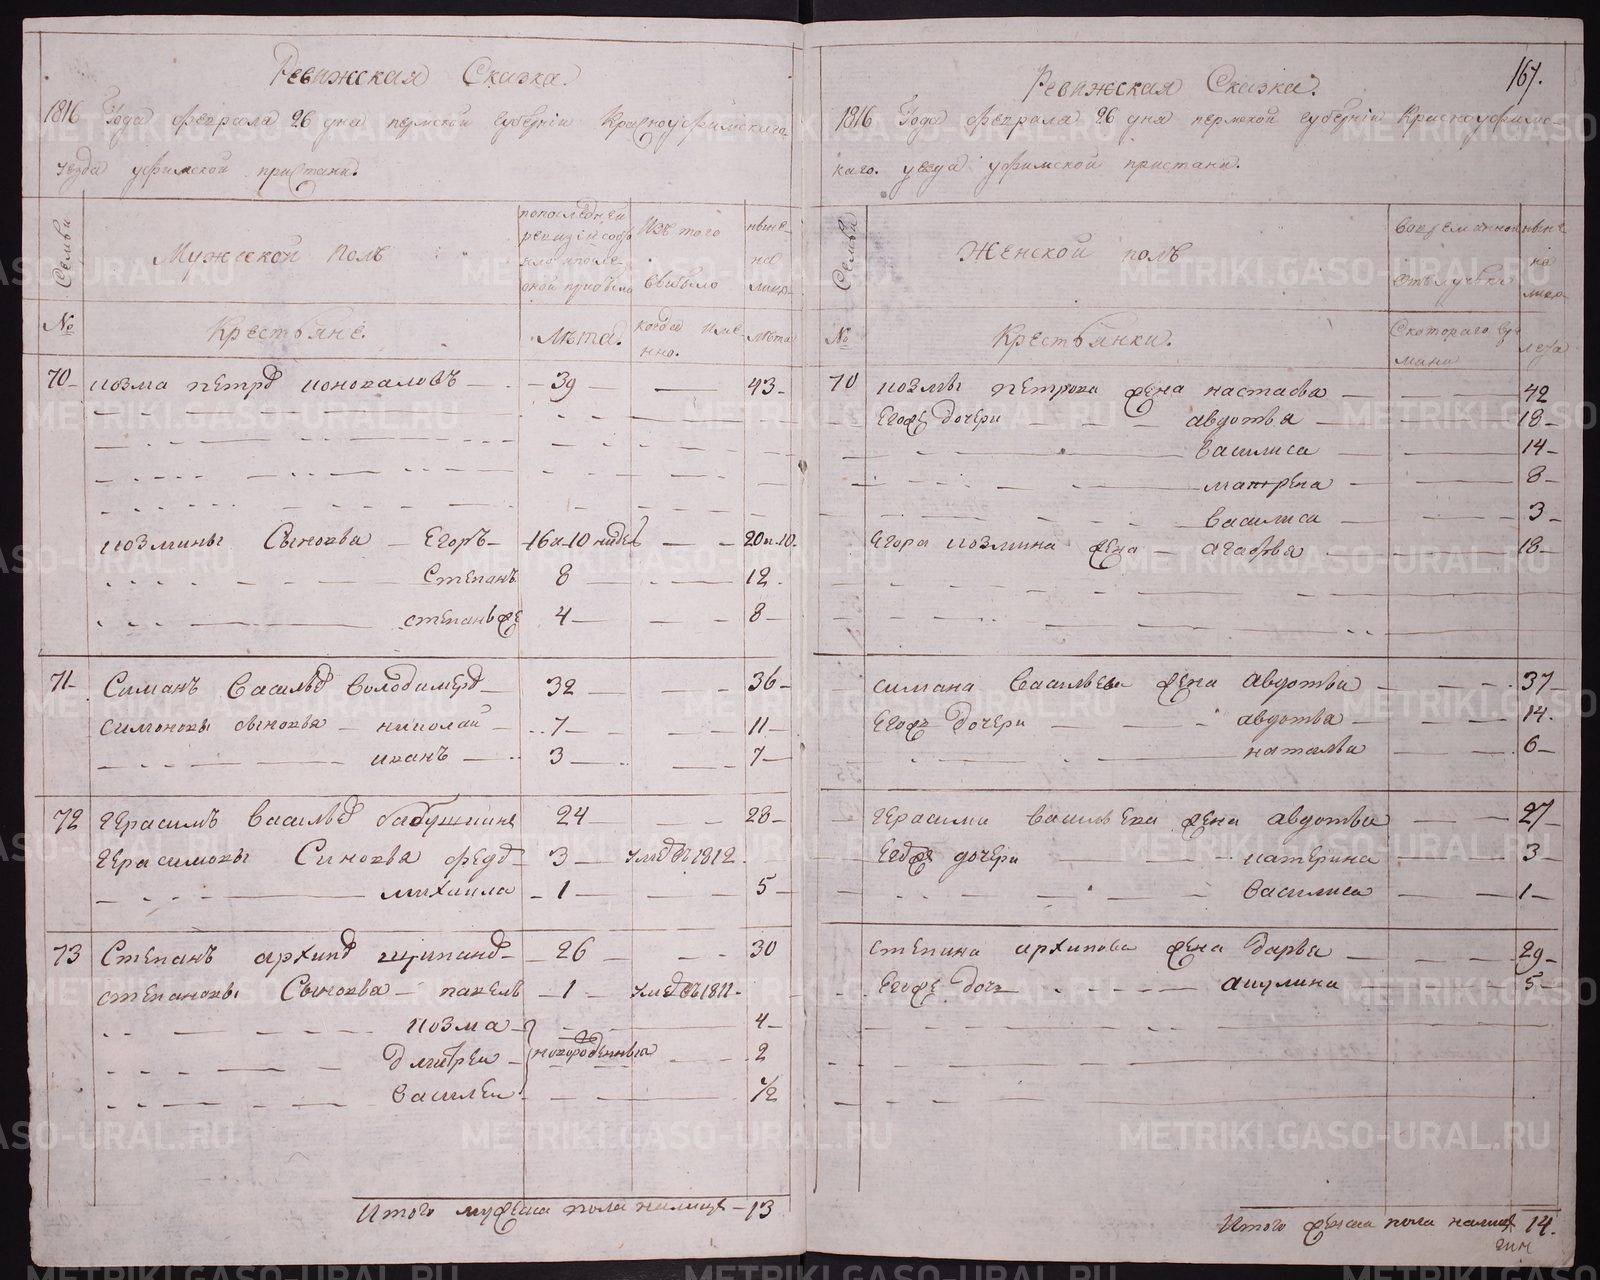 Ревижская Сказка.
1816 Года февраля 26 дня пермской губернии Красноуфимскаго
уезда уфимской пристани.
Семьи
Мужеской полъ
по последней ревизии состояло и после оной прибыло
Изъ того выбыло
ныне на лицо
№
Крестьяне.
Лета.
когда именно.
Лета
70 козма петровъ коноваловъ 39 43
козмины Сыновья Егоръ 16 и 10 недель 20 и 10
Степанъ 8 12
степанъ же 4 8
71 Симанъ Васильевъ Володимеровъ 32 36
симоновы сыновья николай 7 11
иванъ 3 7
72 герасимъ Васильевъ бабушкинъ 24 28
герасимовы Синовья федоръ 3 умре въ 1812
михаила 1 5
73 Степанъ архиповъ щипановъ 26 30
степановы Сыновья павелъ 1 умре въ 1811
козма 4
дмитреи новорожденныя 2
василеи 1/2
Итого мужеска пола налице 13
167.
Ревижская Сказка.
1816 Года февраля 26 дня пермской губернии Красноуфимс-
каго. уезда уфимской пристани.
Семьи
Женской полъ
во временной отълучке
ныне на лицо
№
Крестьянки.
Скотораго времени
лета
70 козмы петрова жена настасья 42
Егоже дочери авдотья 18
василиса 14
матрена 8
василиса 3
Егора козмина жена агафья 18
симана Васильева жена авдотья 37
Егоже дочери авдотья 14
наталья 6
герасима васильева жена авдотья 27
Егоже дочери катерина 3
василиса 1
степана архипова жена дарья 29
Егоже дочь акулина 5
Итого женска пола налице 14.
METRIKI.GASO-URAL.RU